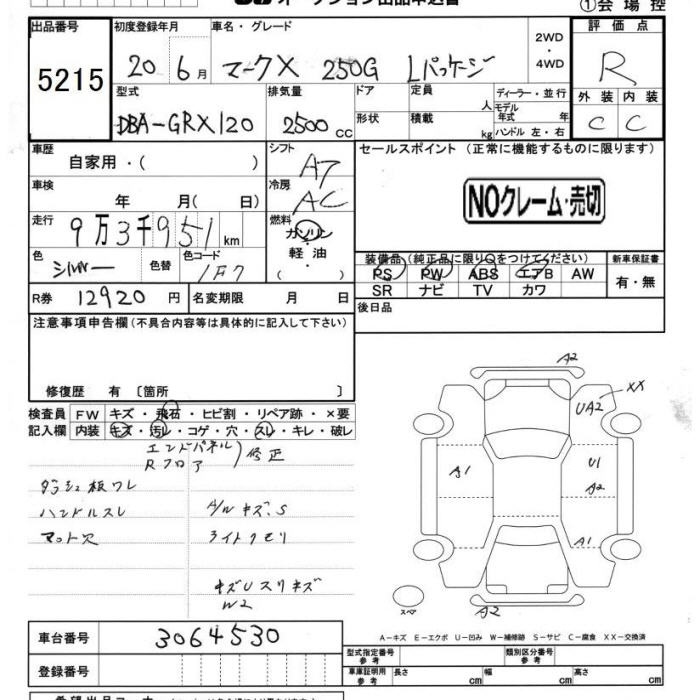 オークション出品申込書
①会場控
出品番号 初度登録年月 車名・グレード 2WD・4WD 評価点
5215 20年6月 マークX 250G Lパッケージ R
型式 排気量 ドア 定員 人 ディーラー・並行 外装 内装
DBA-GRX120 2500cc 形状 積載 kg モデル年式 年 ハンドル 左・右 C C
車歴 自家用・( ) シフト A7 セールスポイント(正常に機能するものに限ります)
車検 年 月( 日) 冷房 AC NOクレーム・売切
走行 9万3千951km 燃料 ガソリン・軽油・
色 シルバー 色替 色コード 1F7 装備品(純正品に限り○をつけてください) 新車保証書
PS PW ABS エアB AW 有・無
SR ナビ TV カワ
R券 12920円 名変期限 月 日 後日品
注意事項申告欄(不具合内容等は具体的に記入して下さい)
修復歴 有〔箇所 〕
検査員 FW キズ・飛石・ヒビ割・リペア跡・×要
記入欄 内装 キズ・汚レ・コゲ・穴・スレ・キレ・破レ
エンドパネル
Rフロア
修正
ダッシュ板ワレ
ハンドルスレ A/Wキズ.S
マット欠 ライトクモリ
キズUスリキズ
W2
A2
XX
UA2
A1 U1
A2
A1
スペア A2
A－キズ E－エクボ U－凹み W－補修跡 S－サビ C－腐食 XX－交換済
車台番号 3064530
型式指定番号 参考 類別区分番号 参考
登録番号 車庫証明用 参考 長さ cm 幅 cm 高さ cm
希望出品コーナー